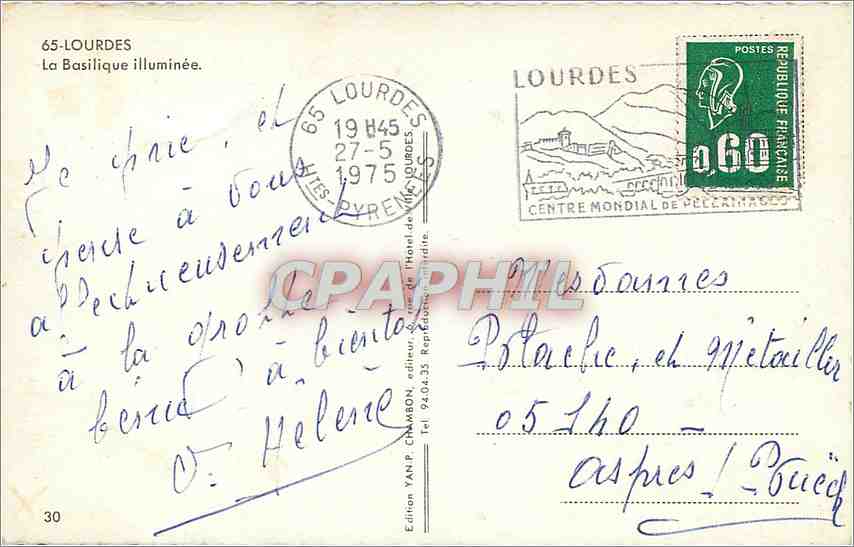 65-LOURDES
La Basilique illuminée.
Je prie, et
pense à vous
affectueusement
à la grotte
bénie à bientôt
Hélène
30
65 LOURDES
19 H45
27-5
1975
HTES-PYRENEES
Edition YAN.P. CHAMBON, editeur, rue de l'Hotel-de-Ville, LOURDES.
Tel. 94.04.35 Reproduction interdite.
LOURDES
CENTRE MONDIAL DE PELERINAGES
POSTES
REPUBLIQUE FRANÇAISE
0,60
CPAPHIL
Mesdames
et Métailler
05140
Aspres